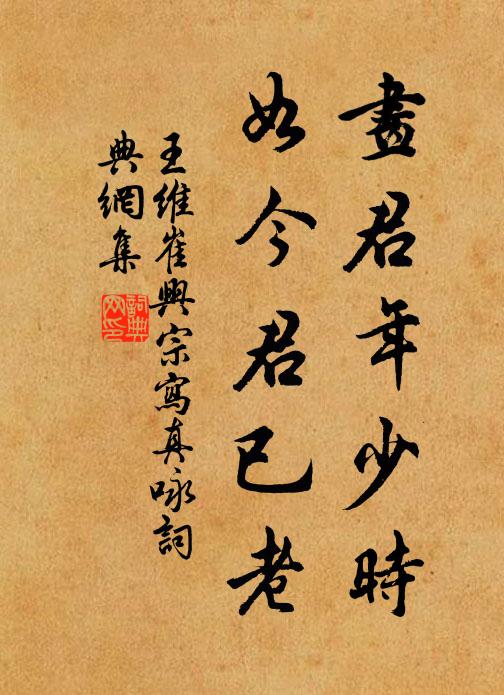 畫君年少時
如今君已老
王維崔興宗寫真咏詞
典網集
詞典網印